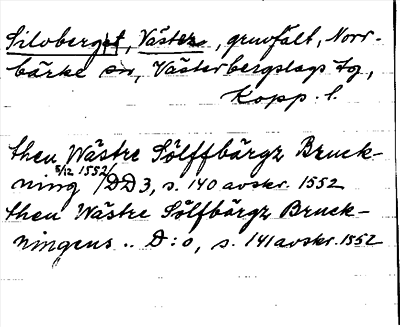 Silvberget, Västra, gruvfält, Norr-
bärke sn, Västerbergslags tg,
Kopp. l.
then Wästre Sölffbärgz Bruck-
ning 5/12 1552/DD3, s. 140 avskr. 1552
then Wästre Sölfbärgz Bruck-
ningens .. D:o, s. 141 avskr. 1552